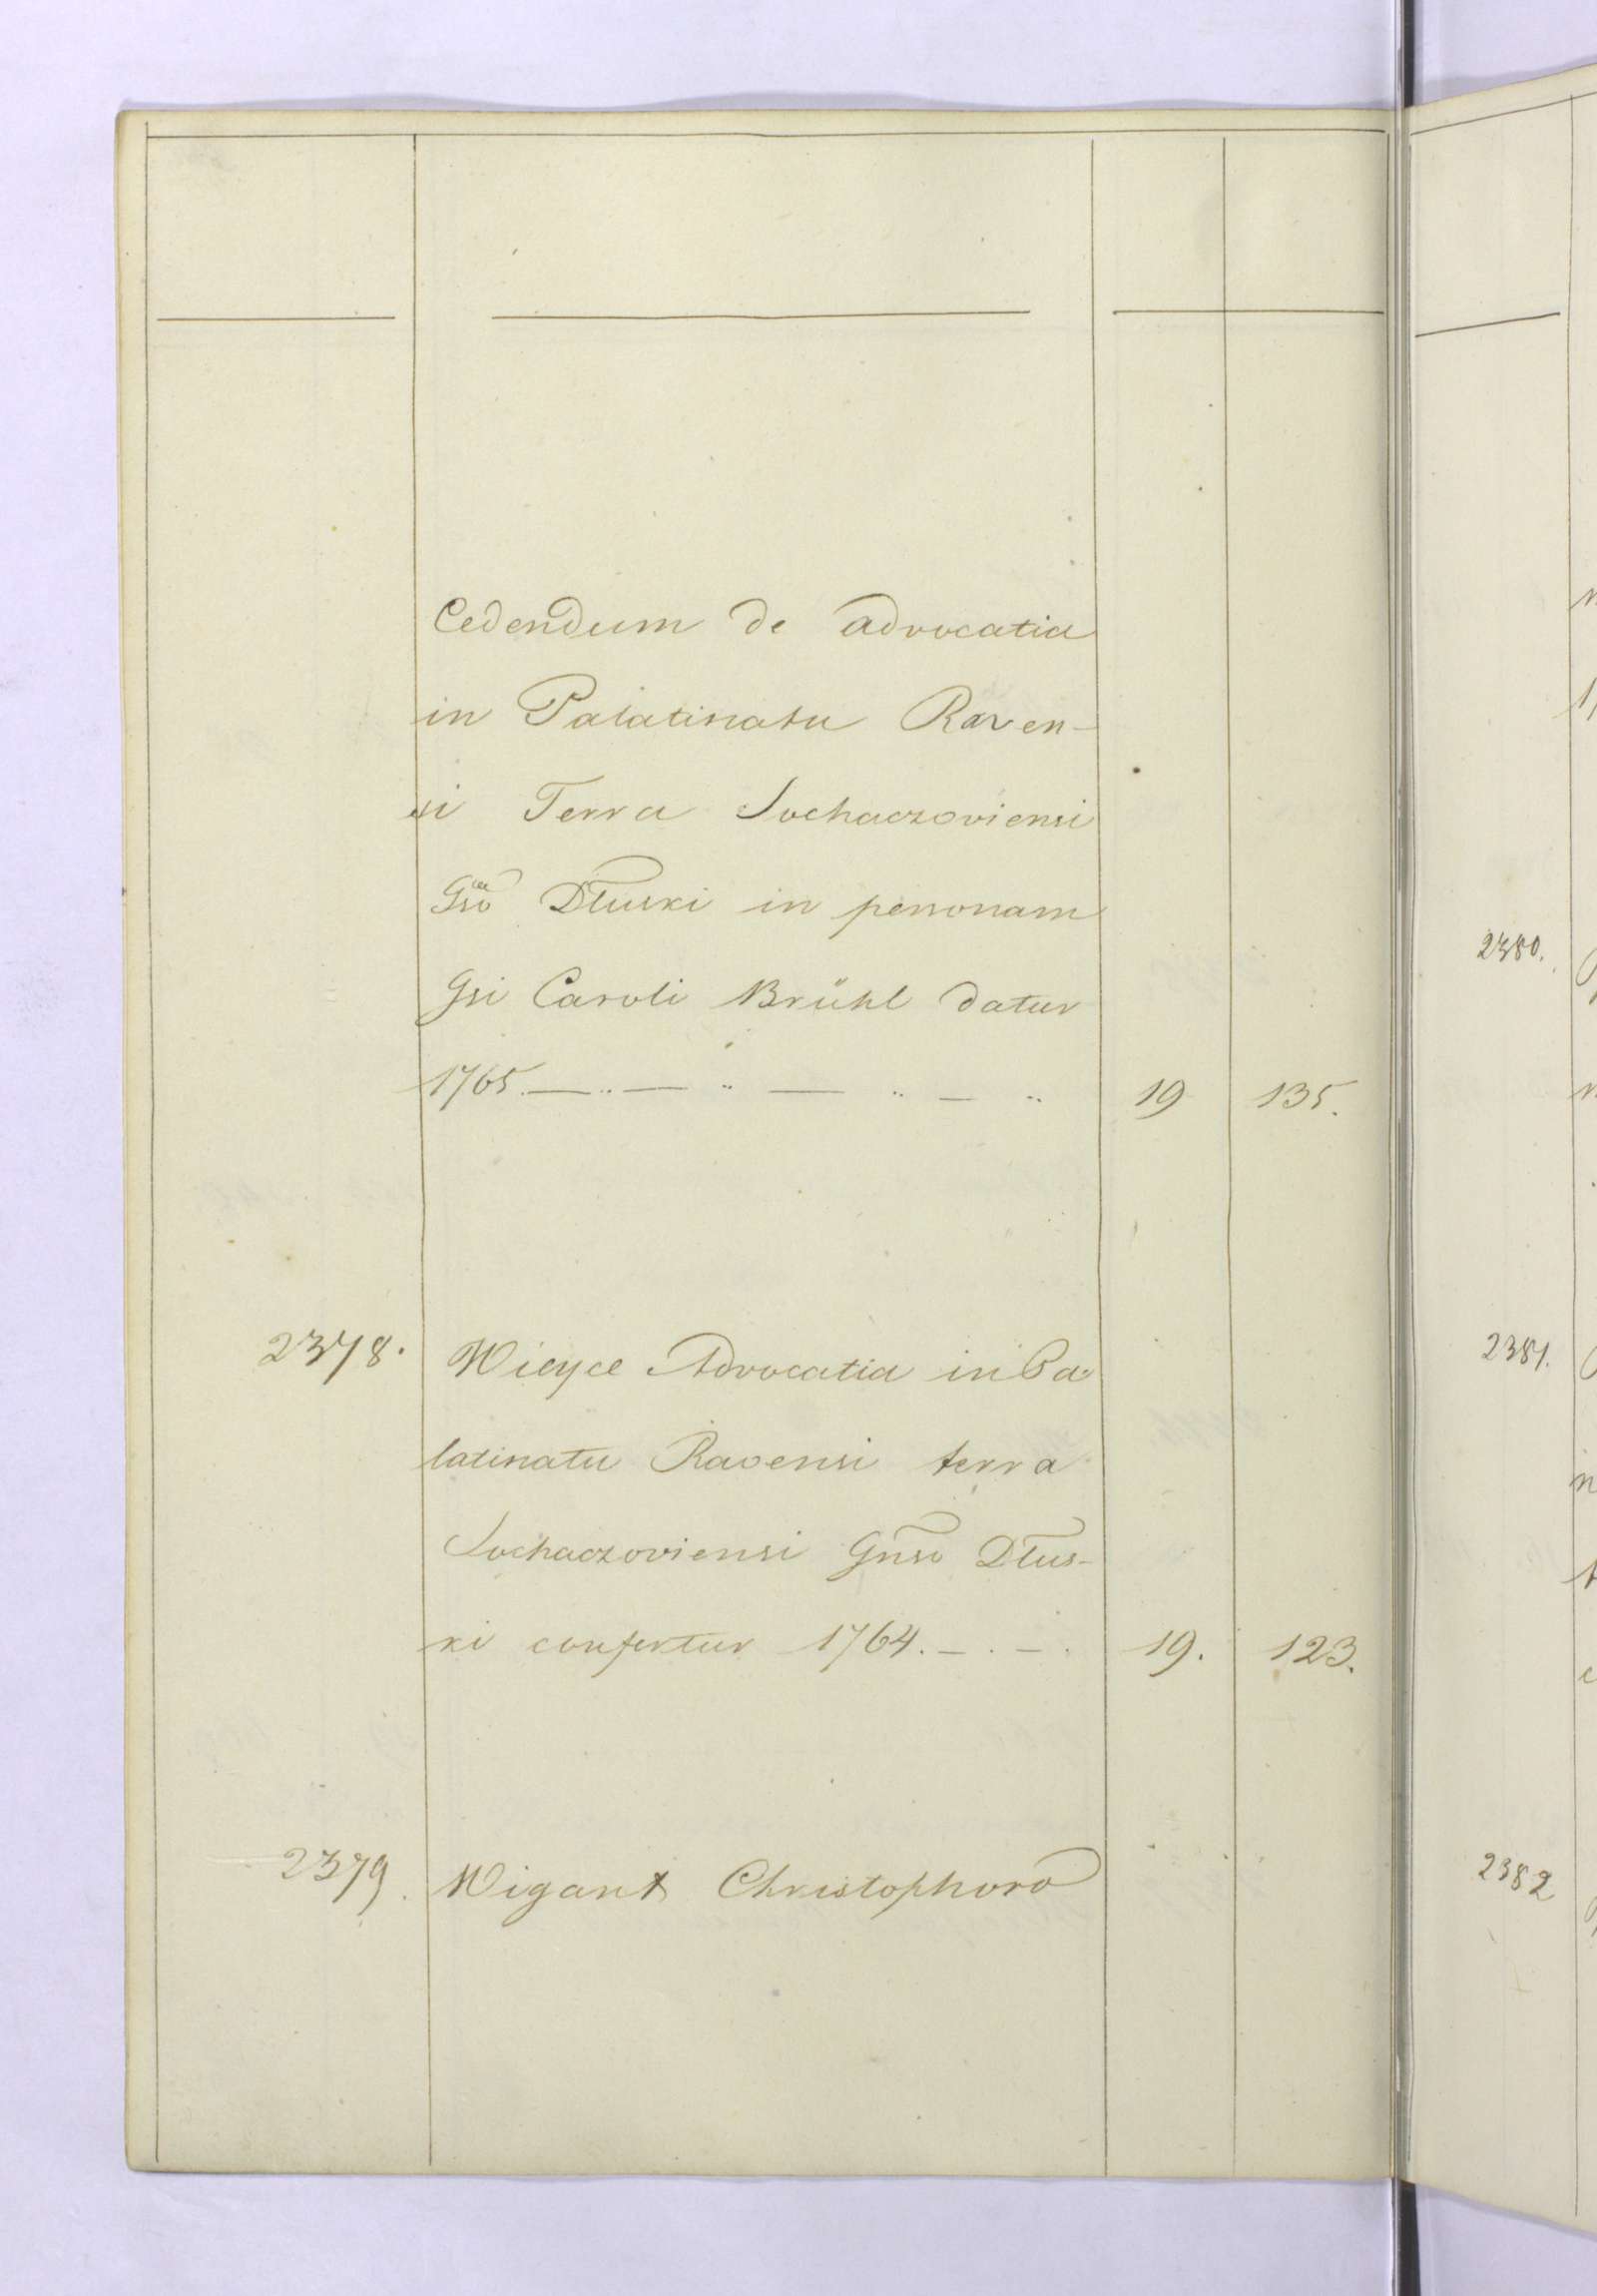 Cedendum de advocatia
in Palatinatu Raven-
si Terra Sochaczoviensi
Gso Dłuski in personam
Gsi Caroli Brühl datur
1765. 19 135.
2378. Wicyce Advocatia in Pa-
latinatu Ravensi terra
Sochaczoviensi Gnso Dłus-
ki confertur 1764. 19. 123.
2379. Wigant Christophoro
2380.
2381.
2382